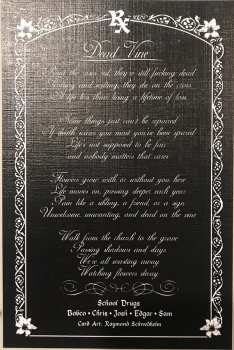 RX
Dead Vine
the sun sat, they're still fucking dead
and waiting they die on the vine
living a lifetime of loss
Some things just can't be repaired
If death saves you most you've been spared
Life's not supposed to be fair
and nobody matters that cares
Flowers grow with or without you here
Life moves on, passing deeper each year
Pain like a sibling, a friend, or a sign
Unwelcome, unwanting, and dead on the vine
Walk from the church to the grave
Passing shadows and days
We're all wasting away
Watching flowers decay
School Drugs
Bobco • Chris • Josh • Edgar • Sam
Card Art: Raymond Schwedhelm